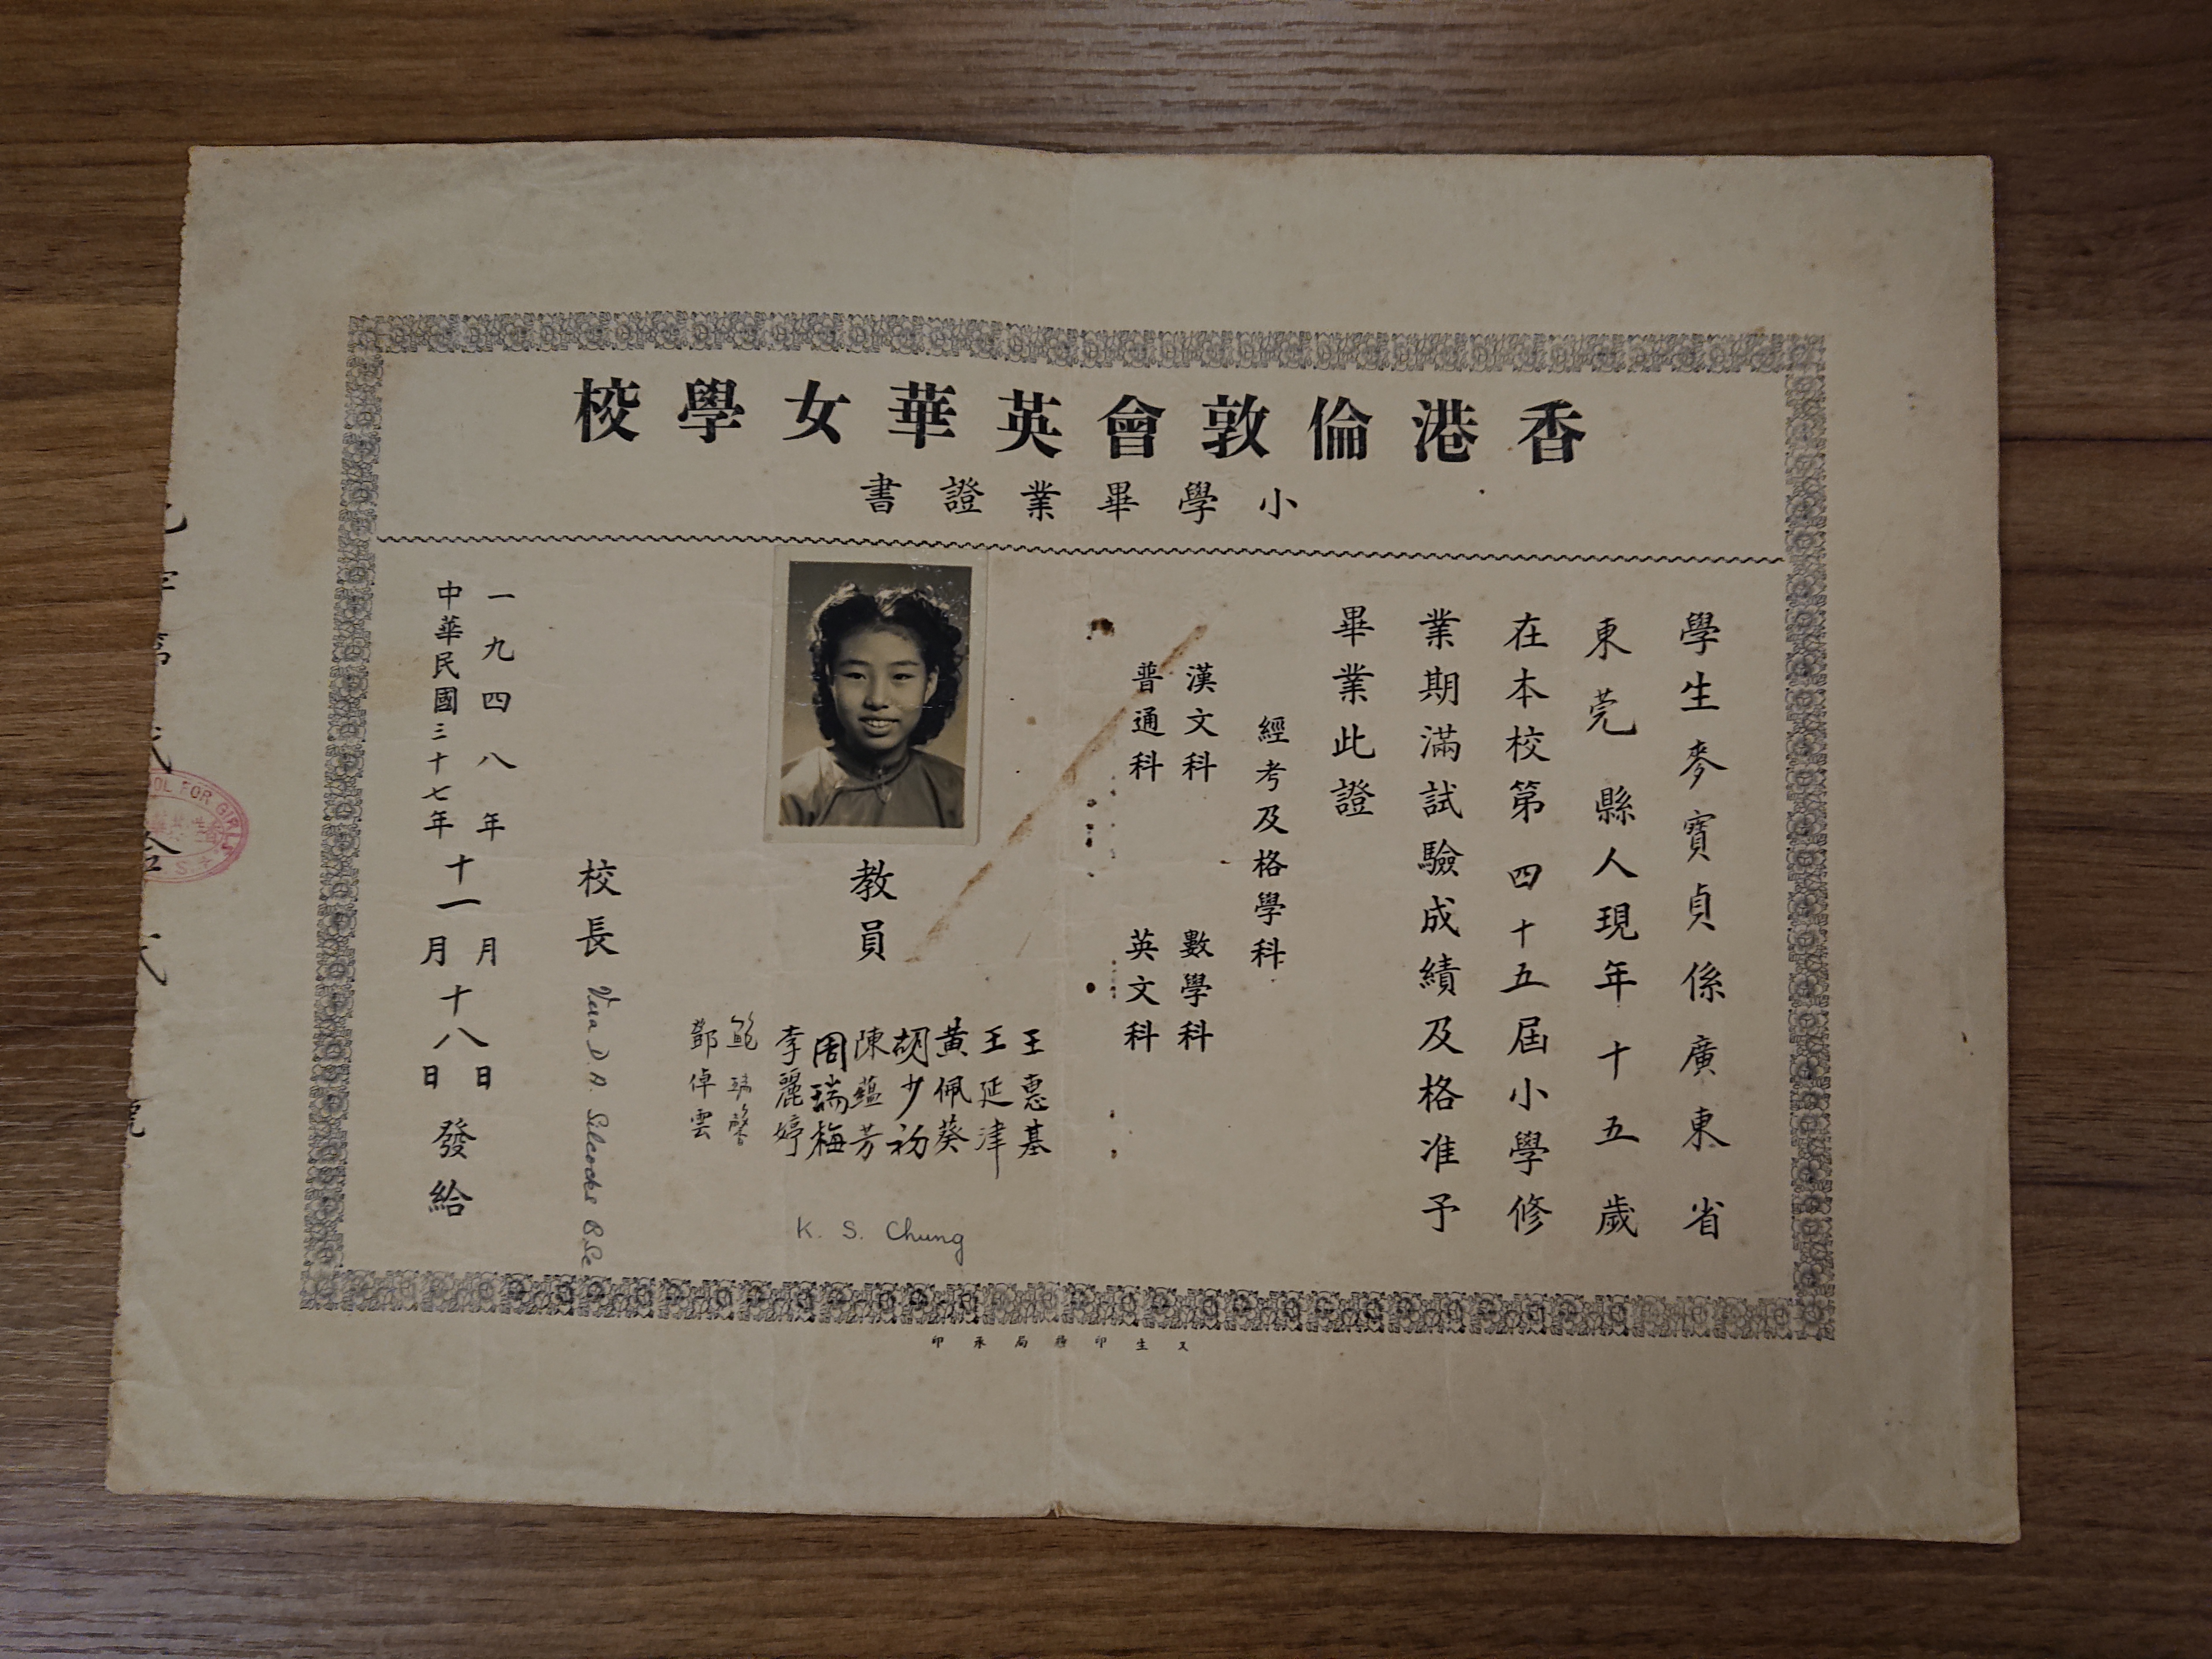 香港倫敦會英華女學校
小學畢業證書
學生麥寶貞係廣東省
東莞縣人現年十五歲
在本校第四十五屆小學修
業期滿試驗成績及格准予
畢業此證
經考及格學科
漢文科 數學科
普通科 英文科
教員
王惠基
王延津
黃佩葵
胡少初
陳蘊芳
周瑞梅
李麗婷
鮑瑞馨
鄧倬雲
K. S. Chung
校長 Vera D. A. Silcocks B.Sc
一九四八年十一月十八日
中華民國三十七年十一月十八日
發給
OL FOR GIRLS
又生印務局承印